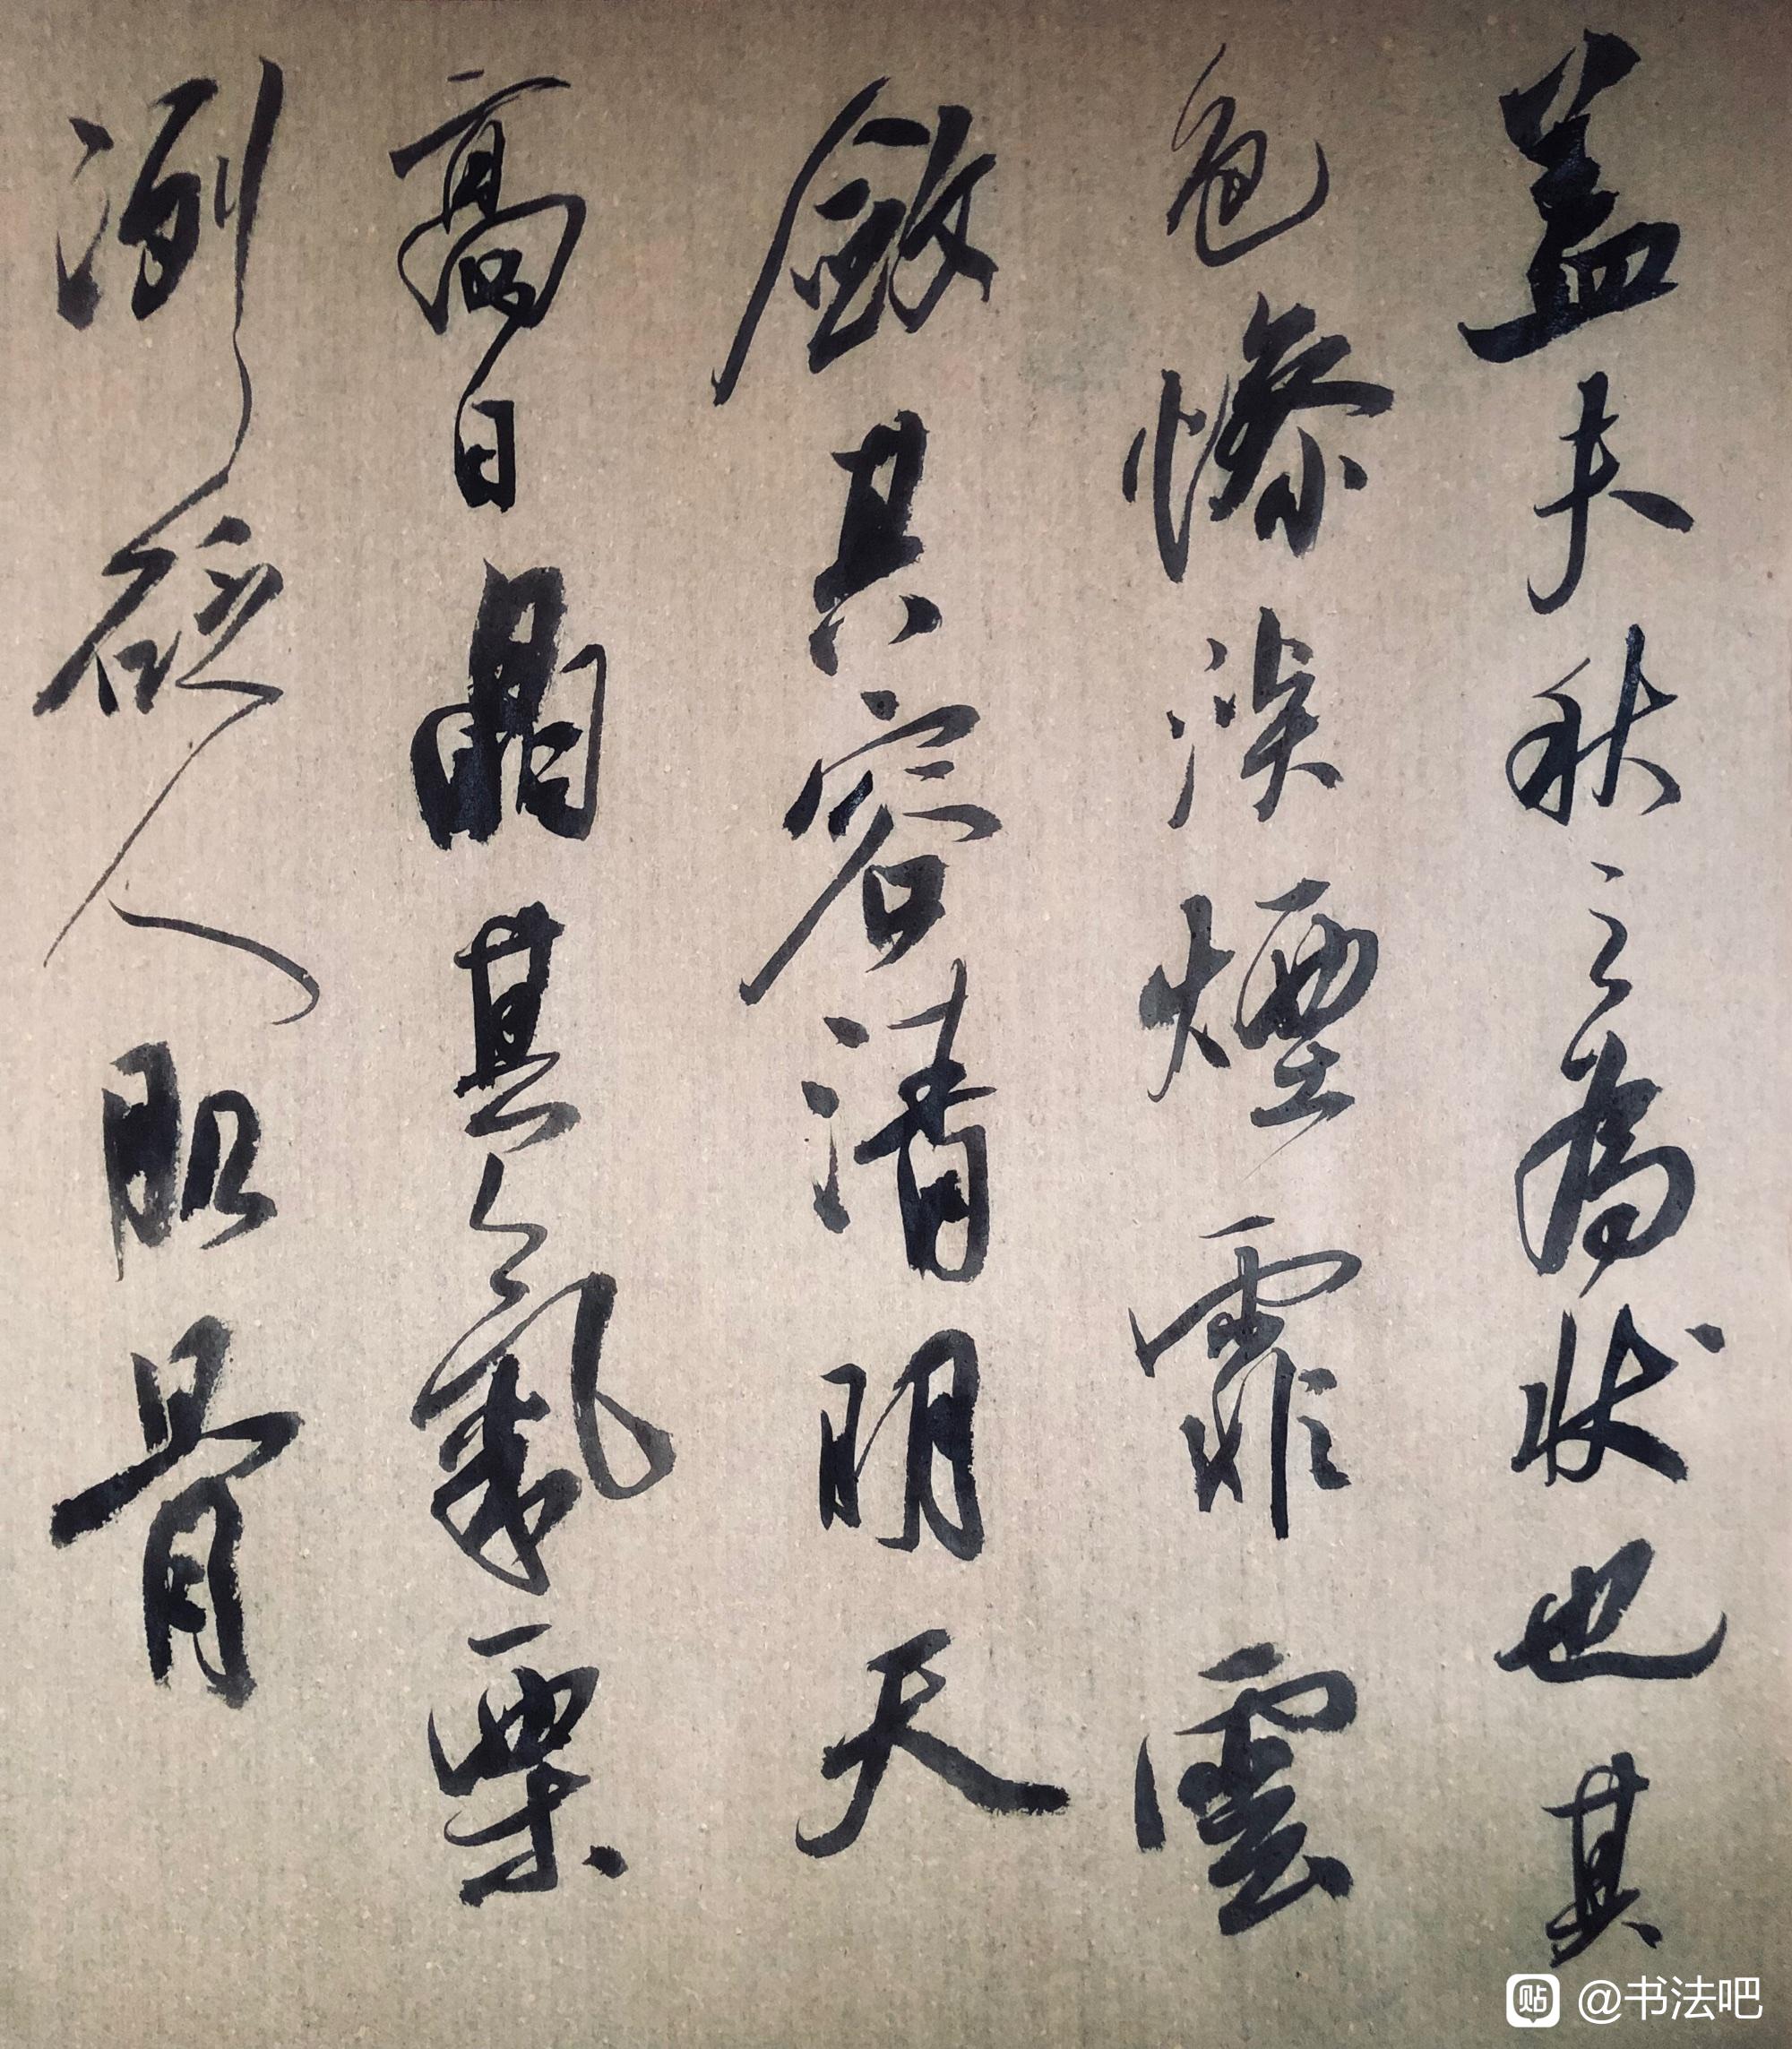 蓋夫秋之為狀也其
色慘淡煙霏雲
斂其容清明天
高日晶其氣栗
冽砭人肌骨
贴 @书法吧